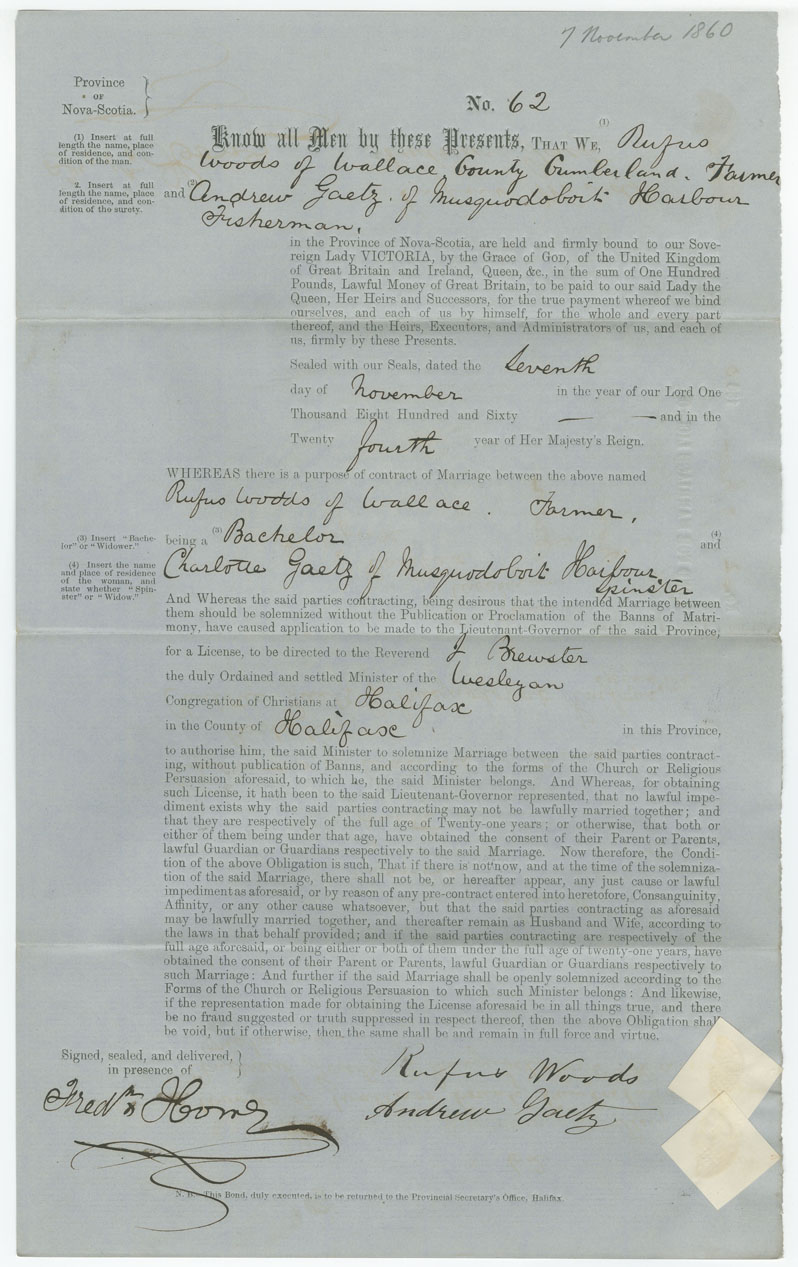 7 November 1860
Province
OF
Nova-Scotia.
No. 62
(1) Insert at full
length the name, place
of residence, and con-
dition of the man.
Know all Men by these Presents, THAT WE, (1) Rufus
Woods of Wallace, County Cumberland. Farmer
2. Insert at full
length the name, place
of residence, and con-
dition of the surety.
and (2) Andrew Gaetz. of Musquodoboit Harbour
Fisherman,
in the Province of Nova-Scotia, are held and firmly bound to our Sove-
reign Lady VICTORIA, by the Grace of GOD, of the United Kingdom
of Great Britain and Ireland, Queen, &c., in the sum of One Hundred
Pounds, Lawful Money of Great Britain, to be paid to our said Lady the
Queen, Her Heirs and Successors, for the true payment whereof we bind
ourselves, and each of us by himself, for the whole and every part
thereof, and the Heirs, Executors, and Administrators of us, and each of
us, firmly by these Presents.
Sealed with our Seals, dated the Seventh
day of November in the year of our Lord One
Thousand Eight Hundred and Sixty — — and in the
Twenty fourth year of Her Majesty's Reign.
WHEREAS there is a purpose of contract of Marriage between the above named
Rufus Woods of Wallace. Farmer,
(3) Insert "Bache-
lor" or "Widower."
being a (3) Bachelor (4) and
(4) Insert the name
and place of residence
of the woman, and
state whether "Spin-
ster" or "Widow."
Charlotte Gaetz of Musquodoboit Harbour,
Spinster
And Whereas the said parties contracting, being desirous that the intended Marriage between
them should be solemnized without the Publication or Proclamation of the Banns of Matri-
mony, have caused application to be made to the Lieutenant-Governor of the said Province,
for a License, to be directed to the Reverend J Brewster
the duly Ordained and settled Minister of the Wesleyan
Congregation of Christians at Halifax
in the County of Halifax in this Province,
to authorise him, the said Minister to solemnize Marriage between the said parties contract-
ing, without publication of Banns, and according to the forms of the Church or Religious
Persuasion aforesaid, to which he, the said Minister belongs. And Whereas, for obtaining
such License, it hath been to the said Lieutenant-Governor represented, that no lawful impe-
diment exists why the said parties contracting may not be lawfully married together; and
that they are respectively of the full age of Twenty-one years; or otherwise, that both or
either of them being under that age, have obtained the consent of their Parent or Parents,
lawful Guardian or Guardians respectively to the said Marriage. Now therefore, the Condi-
tion of the above Obligation is such, That if there is not now, and at the time of the solemniza-
tion of the said Marriage, there shall not be, or hereafter appear, any just cause or lawful
impediment as aforesaid, or by reason of any pre-contract entered into heretofore, Consanguinity,
Affinity, or any other cause whatsoever, but that the said parties contracting as aforesaid
may be lawfully married together, and thereafter remain as Husband and Wife, according to
the laws in that behalf provided; and if the said parties contracting are respectively of the
full age aforesaid, or being either or both of them under the full age of twenty-one years, have
obtained the consent of their Parent or Parents, lawful Guardian or Guardians respectively to
such Marriage: And further if the said Marriage shall be openly solemnized according to the
Forms of the Church or Religious Persuasion to which such Minister belongs: And likewise,
if the representation made for obtaining the License aforesaid be in all things true, and there
be no fraud suggested or truth suppressed in respect thereof, then the above Obligation shall
be void, but if otherwise, then the same shall be and remain in full force and virtue.
Signed, sealed, and delivered,
in presence of
Rufus Woods
Andrew Gaetz
N. B. This Bond, duly executed, is to be returned to the Provincial Secretary's Office, Halifax.